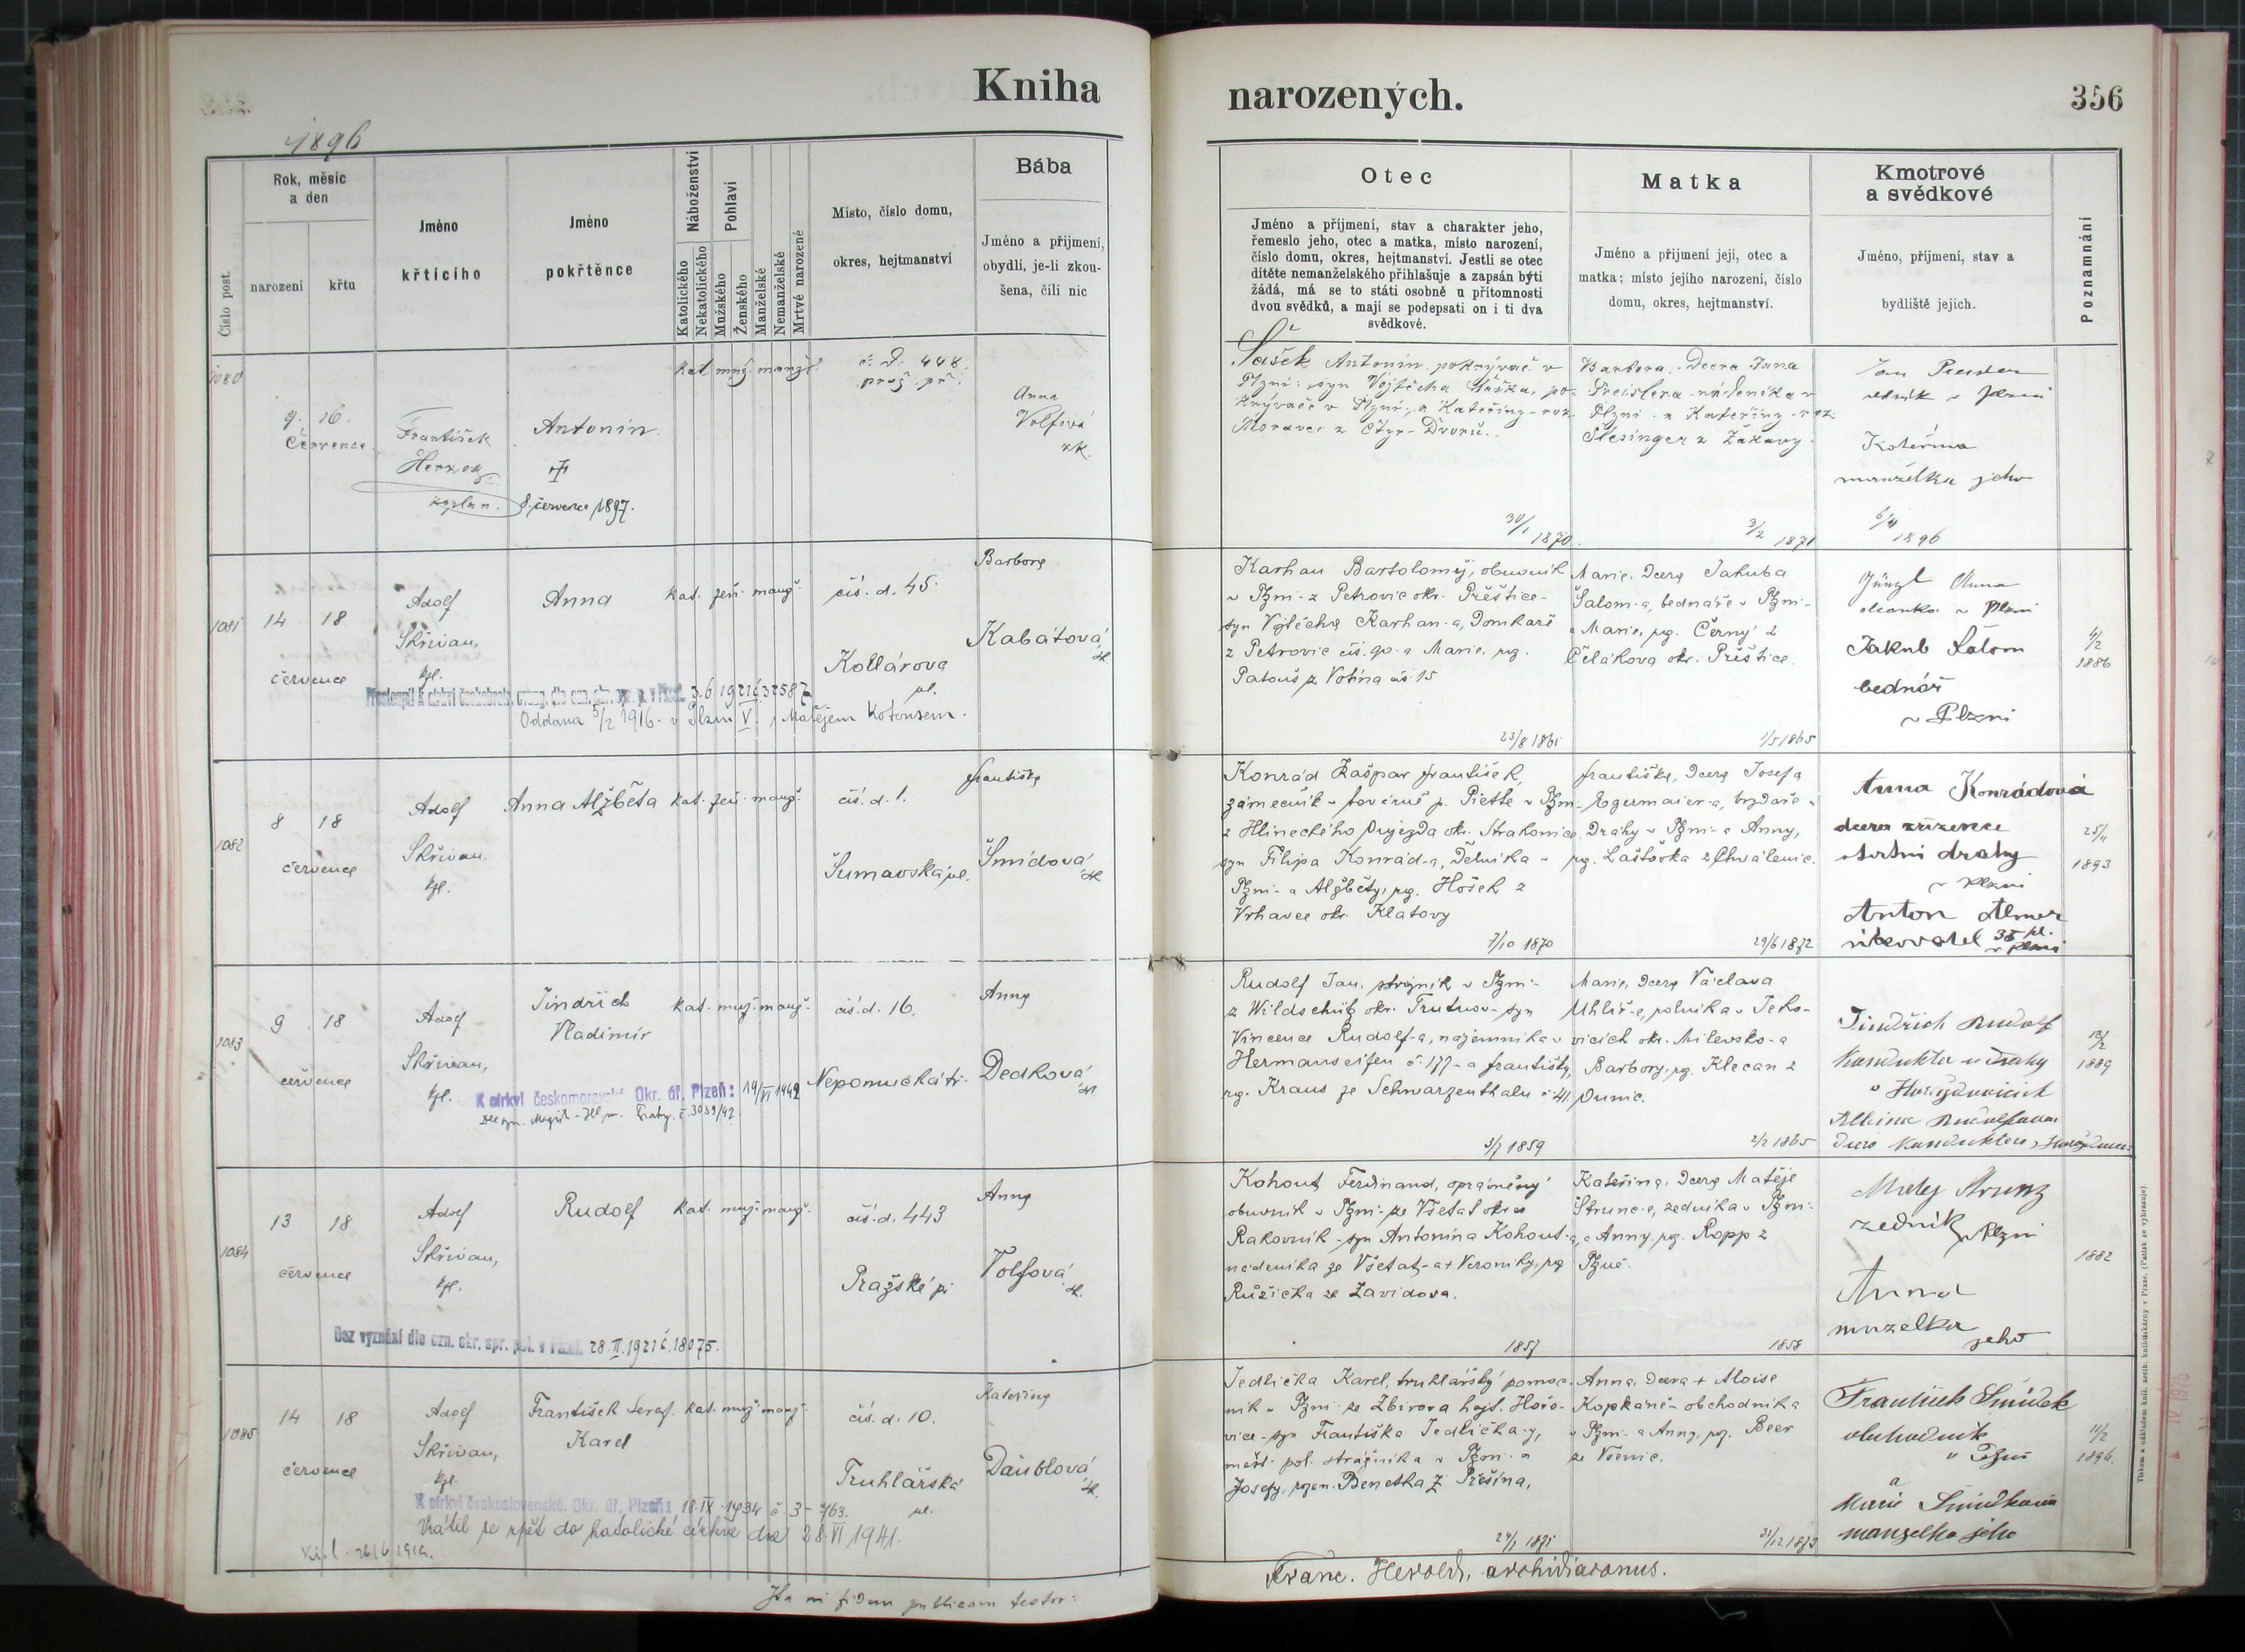 Kniha
narozených.
356
1896
Číslo post.
Rok, měsíc
a den
narození
křtu
Jméno
křtícího
Jméno
pokřtěnce
Náboženství
Katolického
Nekatolického
Pohlaví
Mužského
Ženského
Manželské
Nemanželské
Mrtvě narozené
Místo, číslo domu,
okres, hejtmanství
Bába
Jméno a přijmení,
obydlí, je-li zkou-
šena, čili nic
Otec
Jméno a příjmení, stav a charakter jeho,
řemeslo jeho, otec a matka, místo narození,
číslo domu, okres, hejtmanství. Jestli se otec
dítěte nemanželského přihlašuje a zapsán býti
žádá, má se to státi osobně u přítomnosti
dvou svědků, a mají se podepsati on i ti dva
svědkové.
Matka
Jméno a přijmení její, otec a
matka; místo jejího narození, číslo
domu, okres, hejtmanství.
Kmotrové
a svědkové
Jméno, příjmení, stav a
bydliště jejich.
Poznamnání
1080
9. 16.
Července
František
Herzog
kaplan.
Antonín
8. července 1897.
kat. muž. manž.
č. d. 448.
praž. př.
Anna
Volfová
zk.
Šašek Antonín, pokrývač v
Plzni: syn Vojtěcha Šaška, po-
krývače v Plzni, a Kateřiny roz.
Moravec z Čtyr-Dvorů.
30/1 1870.
Barbora, dcera Jana
Preislera nádeníka v
Plzni a Kateřiny roz.
Slesinger z Žákavy.
3/2 1871
Jan
v Plzni
Kateřina
manželka jeho
1896
1081
14 18
července
Adolf
Skřivan,
kpl.
Anna
kat. žen. manž.
čís. d. 45.
Kollárova
ul.
Barbora
Kabátová
zk.
3.6.1921 č. 32587
Oddána 5/2 1916. v Plzni V. s Matějem Kotousem.
Karhan Bartoloměj, obuvník
v Plzni - z Petrovic okr. Přeštice -
syn Vojtěcha Karhan-a, domkaře
z Petrovic čís. 90. a Marie, roz.
Patouš z Votína čís 15
23/8 1861
Marie, dcera Jakuba
Šalom-a, bednáře v Plzni -
a Marie, roz. Černý z
Čelákova okr. Přeštice.
1/5 1865
Anna
v Plzni
Jakub Šalom
bednář
v Plzni
4/2
1886
1082
8 18
července
Adolf
Skřivan,
kpl.
Anna Alžběta
kat. žen. manž.
čís. d. 1.
Šumavská ul.
Františka
Šmídová
zk.
Konrád Kašpar František,
zámečník v továrně p. Piette v Plzni -
z Hlineckého Újezda okr. Strakonice
syn Filipa Konrád-a, dělníka v
Plzni - a Alžběty, roz. Hošek z
Vrhavče okr. Klatovy
7/10 1870
Františka, dcera Josefa
Egermaier-a, hrzdaře u
dráhy v Plzni - a Anny,
roz. Laštovka z Chválenic.
29/6 1872
Anna Konrádová
dcera zřízence
státní dráhy
v Plzni
Anton
v Plzni
25/11
1893
1083
9 18
července
Adolf
Skřivan,
kpl.
Jindřich
Vladimír
kat. muž. manž.
čís. d. 16.
Nepomucká tř.
Anna
Dedková
zk.
K církvi českomoravské Okr. úř. Plzeň: 19/VI 1942
č. 3039/42
Rudolf Jan, strážník v Plzni -
z Wildschütz okr. Trutnov - syn
Vincence Rudolf-a, nájemníka v
Hermannseifen č. 177 - a Františky,
roz. Kraus ze Schwarzenthalu č 41
5/7 1859
Marie, dcera Václava
Uhlíř-e, rolníka v Jeto-
vicích okr. Milevsko - a
Barbory, roz. Klecan z
Dunic.
2/2 1865
Jindřich Rudolf
Kondukter u dráhy
v Horažďovicích
Albina Rudolfova
dcera Konduktera
12/2
1889
1084
13 18
července
Adolf
Skřivan,
kpl.
Rudolf
kat. muž. manž.
čís. d. 443
Pražské př.
Anna
Volfová
zk.
Bez vyznání dle ozn. okr. spr. pol. v Plzni 28.II.1921 č. 18075.
Kohout Ferdinand, oprávněný
obuvník v Plzni - ze Všetat okres
Rakovník - syn Antonína Kohout-a,
nádeníka ze Všetat - a + Veroniky, roz
Růžička ze Zavidova.
1857
Kateřina, dcera Matěje
Štrunc-e, zedníka v Plzni -
a Anny, roz. Ropp z
Plzně.
1858
Matěj Strunz
zedník v Plzni
Anna
manzelka
jeho
1882
1085
14 18
července
Adolf
Skřivan,
kpl.
František Seraf.
Karel
kat. muž. manž.
čís. d. 10.
Truhlářská
ul.
Kateřina
Daiblová
zk.
K církvi československé. Okr. úř. Plzeň: 18.IX.1934 č 3-763.
Vrátil se zpět do katolické církve dne 28.VI 1941.
26/6 1919.
Jedlička Karel, truhlářský pomoc-
ník v Plzni ze Zbirova hejt. Hořo-
vice - syn Františka Jedlička-y,
měst. pol. strážníka v Plzni - a
Josefy, rozen. Benetka z Přešína,
24/1 1871
Anna, dcera + Aloise
Kopkáně - obchodníka
v Plzni - a Anny, roz. Beer
ze Všenic.
31/12 1873
František Šmídek
obchodník
v Plzni
a
Marie Šmídkova
manželka jeho
11/2
1896.
Ita in fidem publicam testor:
Franc. Herold, archidiaconus.